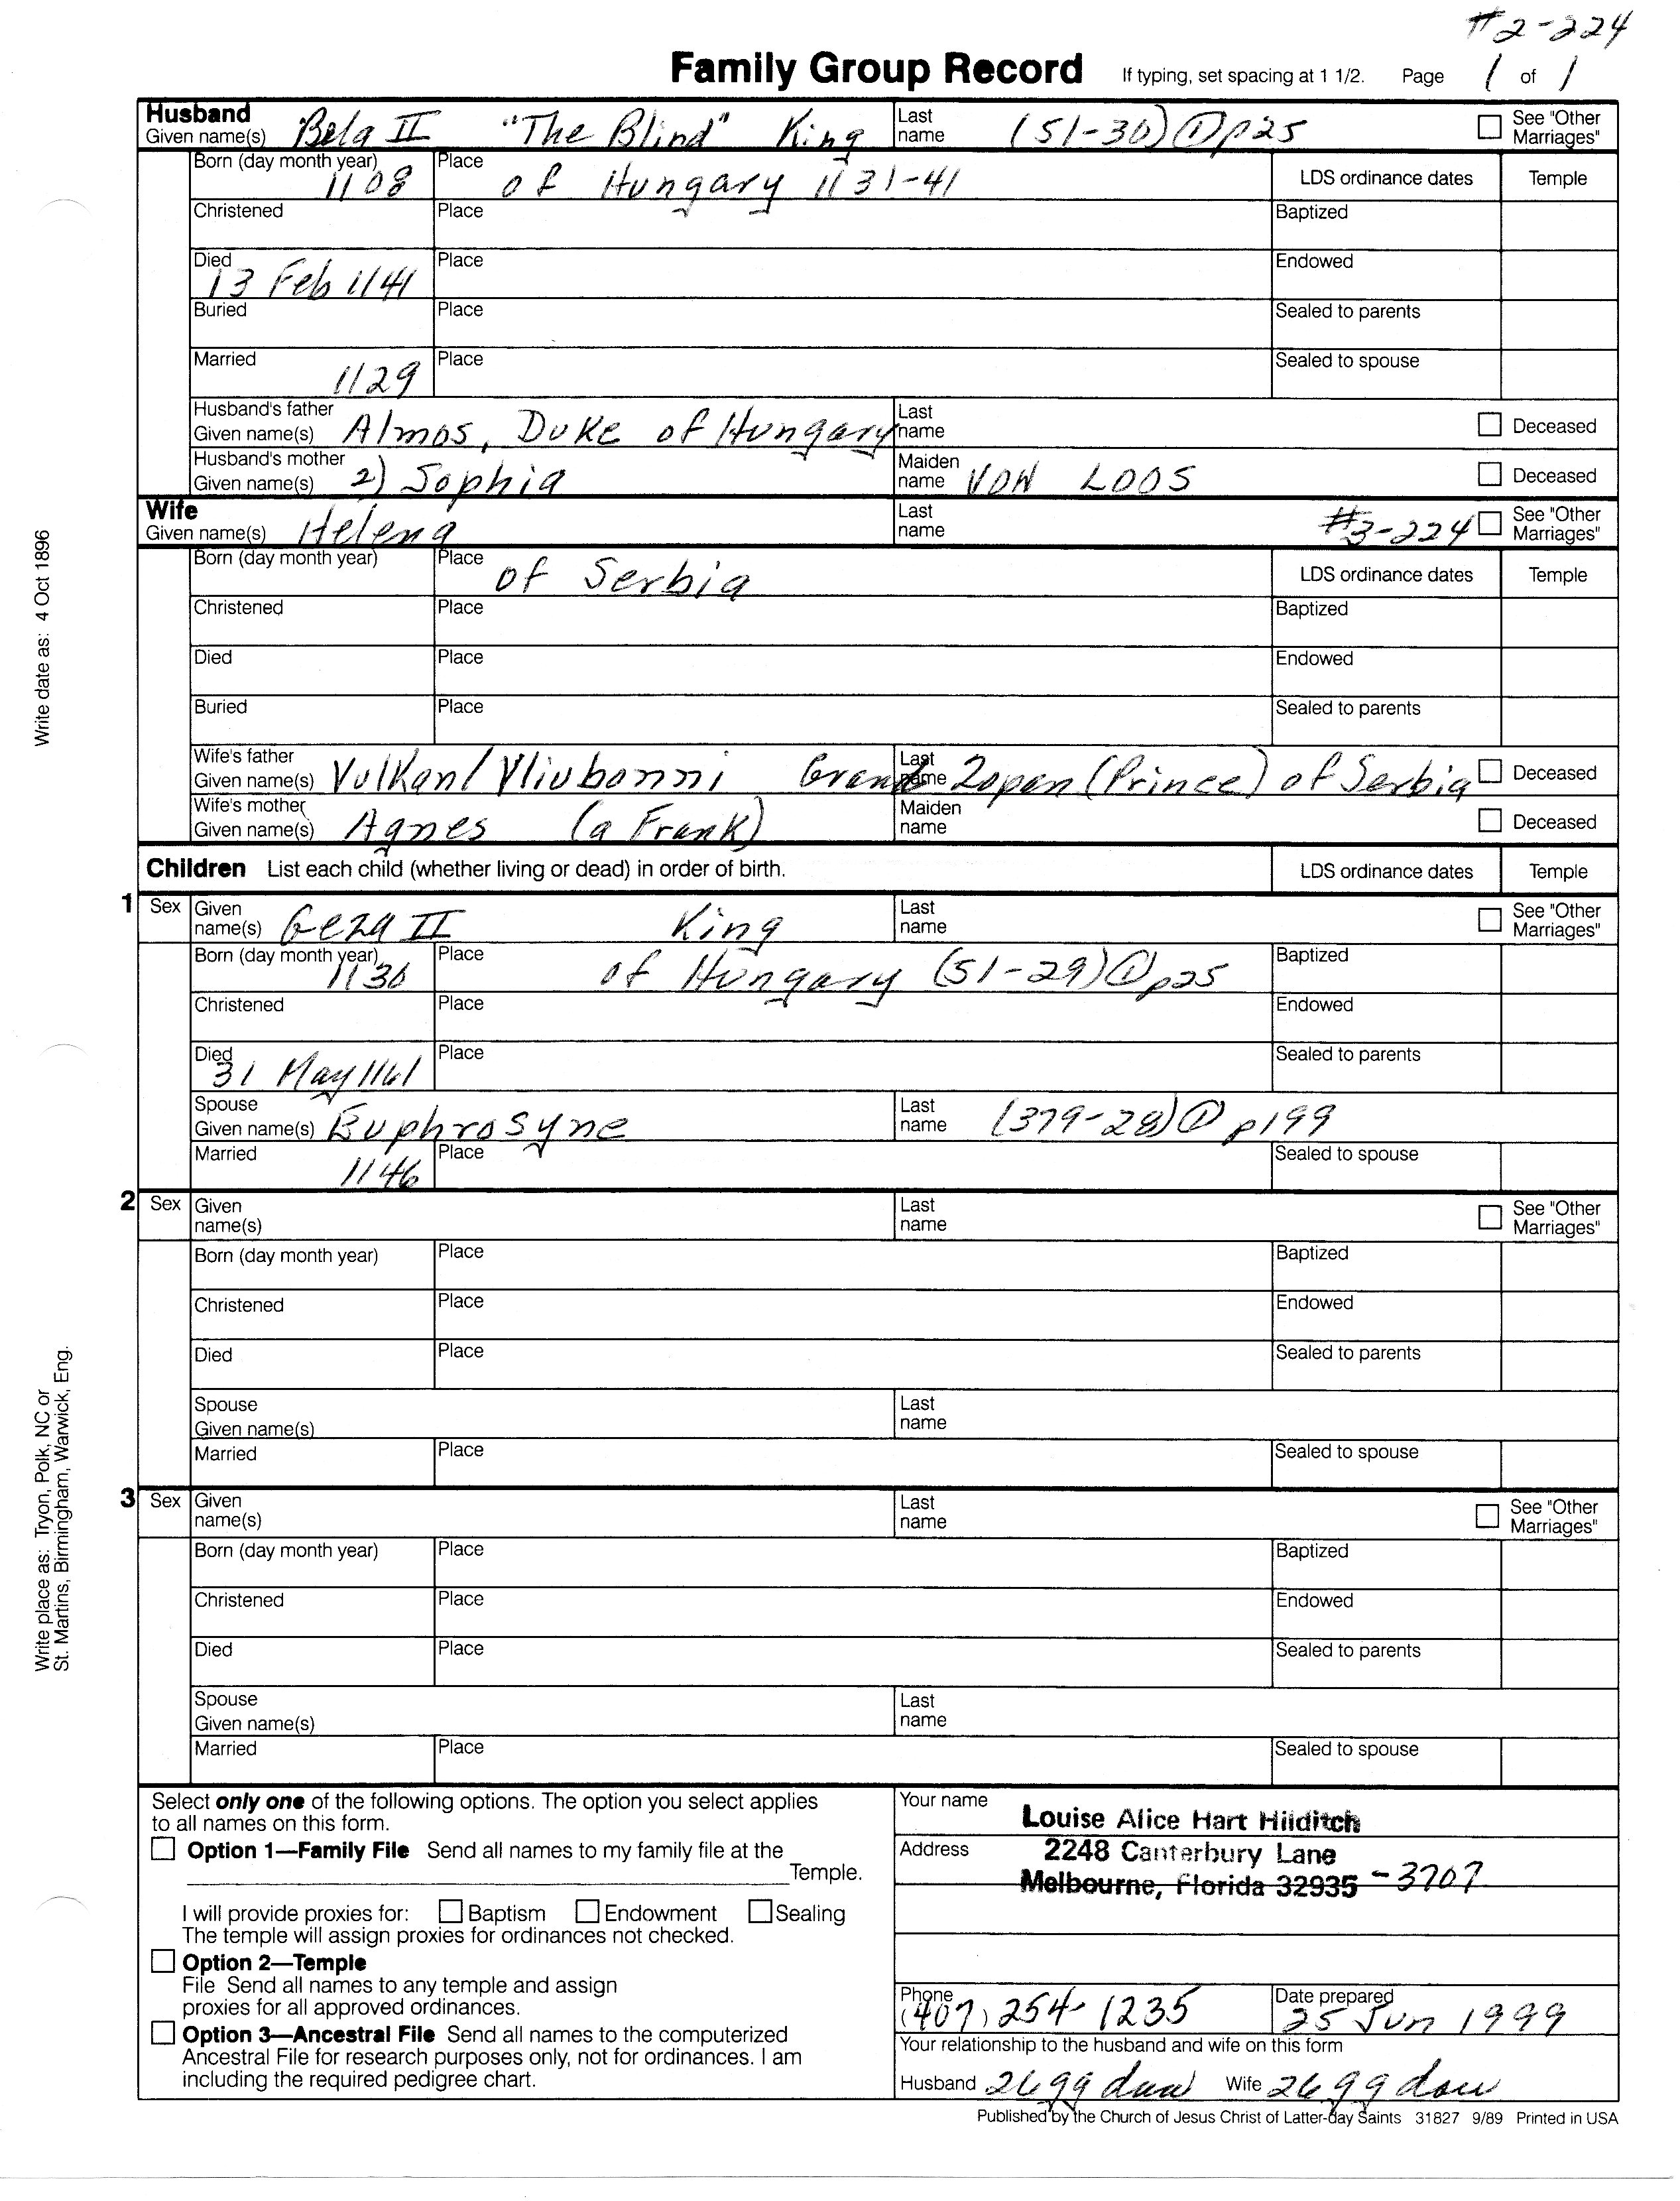 #2-224
Family Group Record If typing, set spacing at 1 1/2. Page 1 of 1
Husband
Given name(s) Bela II "The Blind" King Last name (51-30) ① p25 See "Other Marriages"
Born (day month year) 1108 Place of Hungary 1131-41 LDS ordinance dates Temple
Christened Place Baptized
Died 13 Feb 1141 Place Endowed
Buried Place Sealed to parents
Married 1129 Place Sealed to spouse
Husband's father
Given name(s) Almos, Duke of Hungary Last name Deceased
Husband's mother
Given name(s) 2) Sophia Maiden name VON LOOS Deceased
Wife
Given name(s) Helena Last name #3-224 See "Other Marriages"
Born (day month year) Place of Serbia LDS ordinance dates Temple
Christened Place Baptized
Died Place Endowed
Buried Place Sealed to parents
Wife's father
Given name(s) Vulkan/Vliubonni Grand Last name Zopan (Prince) of Serbia Deceased
Wife's mother
Given name(s) Agnes (a Frank) Maiden name Deceased
Children List each child (whether living or dead) in order of birth. LDS ordinance dates Temple
1 Sex Given name(s) Geza II King Last name See "Other Marriages"
Born (day month year) 1130 Place of Hungary (51-29) ① p25 Baptized
Christened Place Endowed
Died 31 May 1161 Place Sealed to parents
Spouse
Given name(s) Euphrosyne Last name (379-28) ① p199
Married 1146 Place Sealed to spouse
2 Sex Given name(s) Last name See "Other Marriages"
Born (day month year) Place Baptized
Christened Place Endowed
Died Place Sealed to parents
Spouse
Given name(s) Last name
Married Place Sealed to spouse
3 Sex Given name(s) Last name See "Other Marriages"
Born (day month year) Place Baptized
Christened Place Endowed
Died Place Sealed to parents
Spouse
Given name(s) Last name
Married Place Sealed to spouse
Select only one of the following options. The option you select applies
to all names on this form.
Option 1—Family File Send all names to my family file at the
Temple.
I will provide proxies for: Baptism Endowment Sealing
The temple will assign proxies for ordinances not checked.
Option 2—Temple
File Send all names to any temple and assign
proxies for all approved ordinances.
Option 3—Ancestral File Send all names to the computerized
Ancestral File for research purposes only, not for ordinances. I am
including the required pedigree chart.
Your name Louise Alice Hart Hilditch
Address 2248 Canterbury Lane
Melbourne, Florida 32935 -3707
Phone (407) 254-1235 Date prepared 25 Jun 1999
Your relationship to the husband and wife on this form
Husband 26 gg dau Wife 26 gg dau
Published by the Church of Jesus Christ of Latter-day Saints 31827 9/89 Printed in USA
Write date as: 4 Oct 1896
Write place as: Tryon, Polk, NC or
St. Martins, Birmingham, Warwick, Eng.